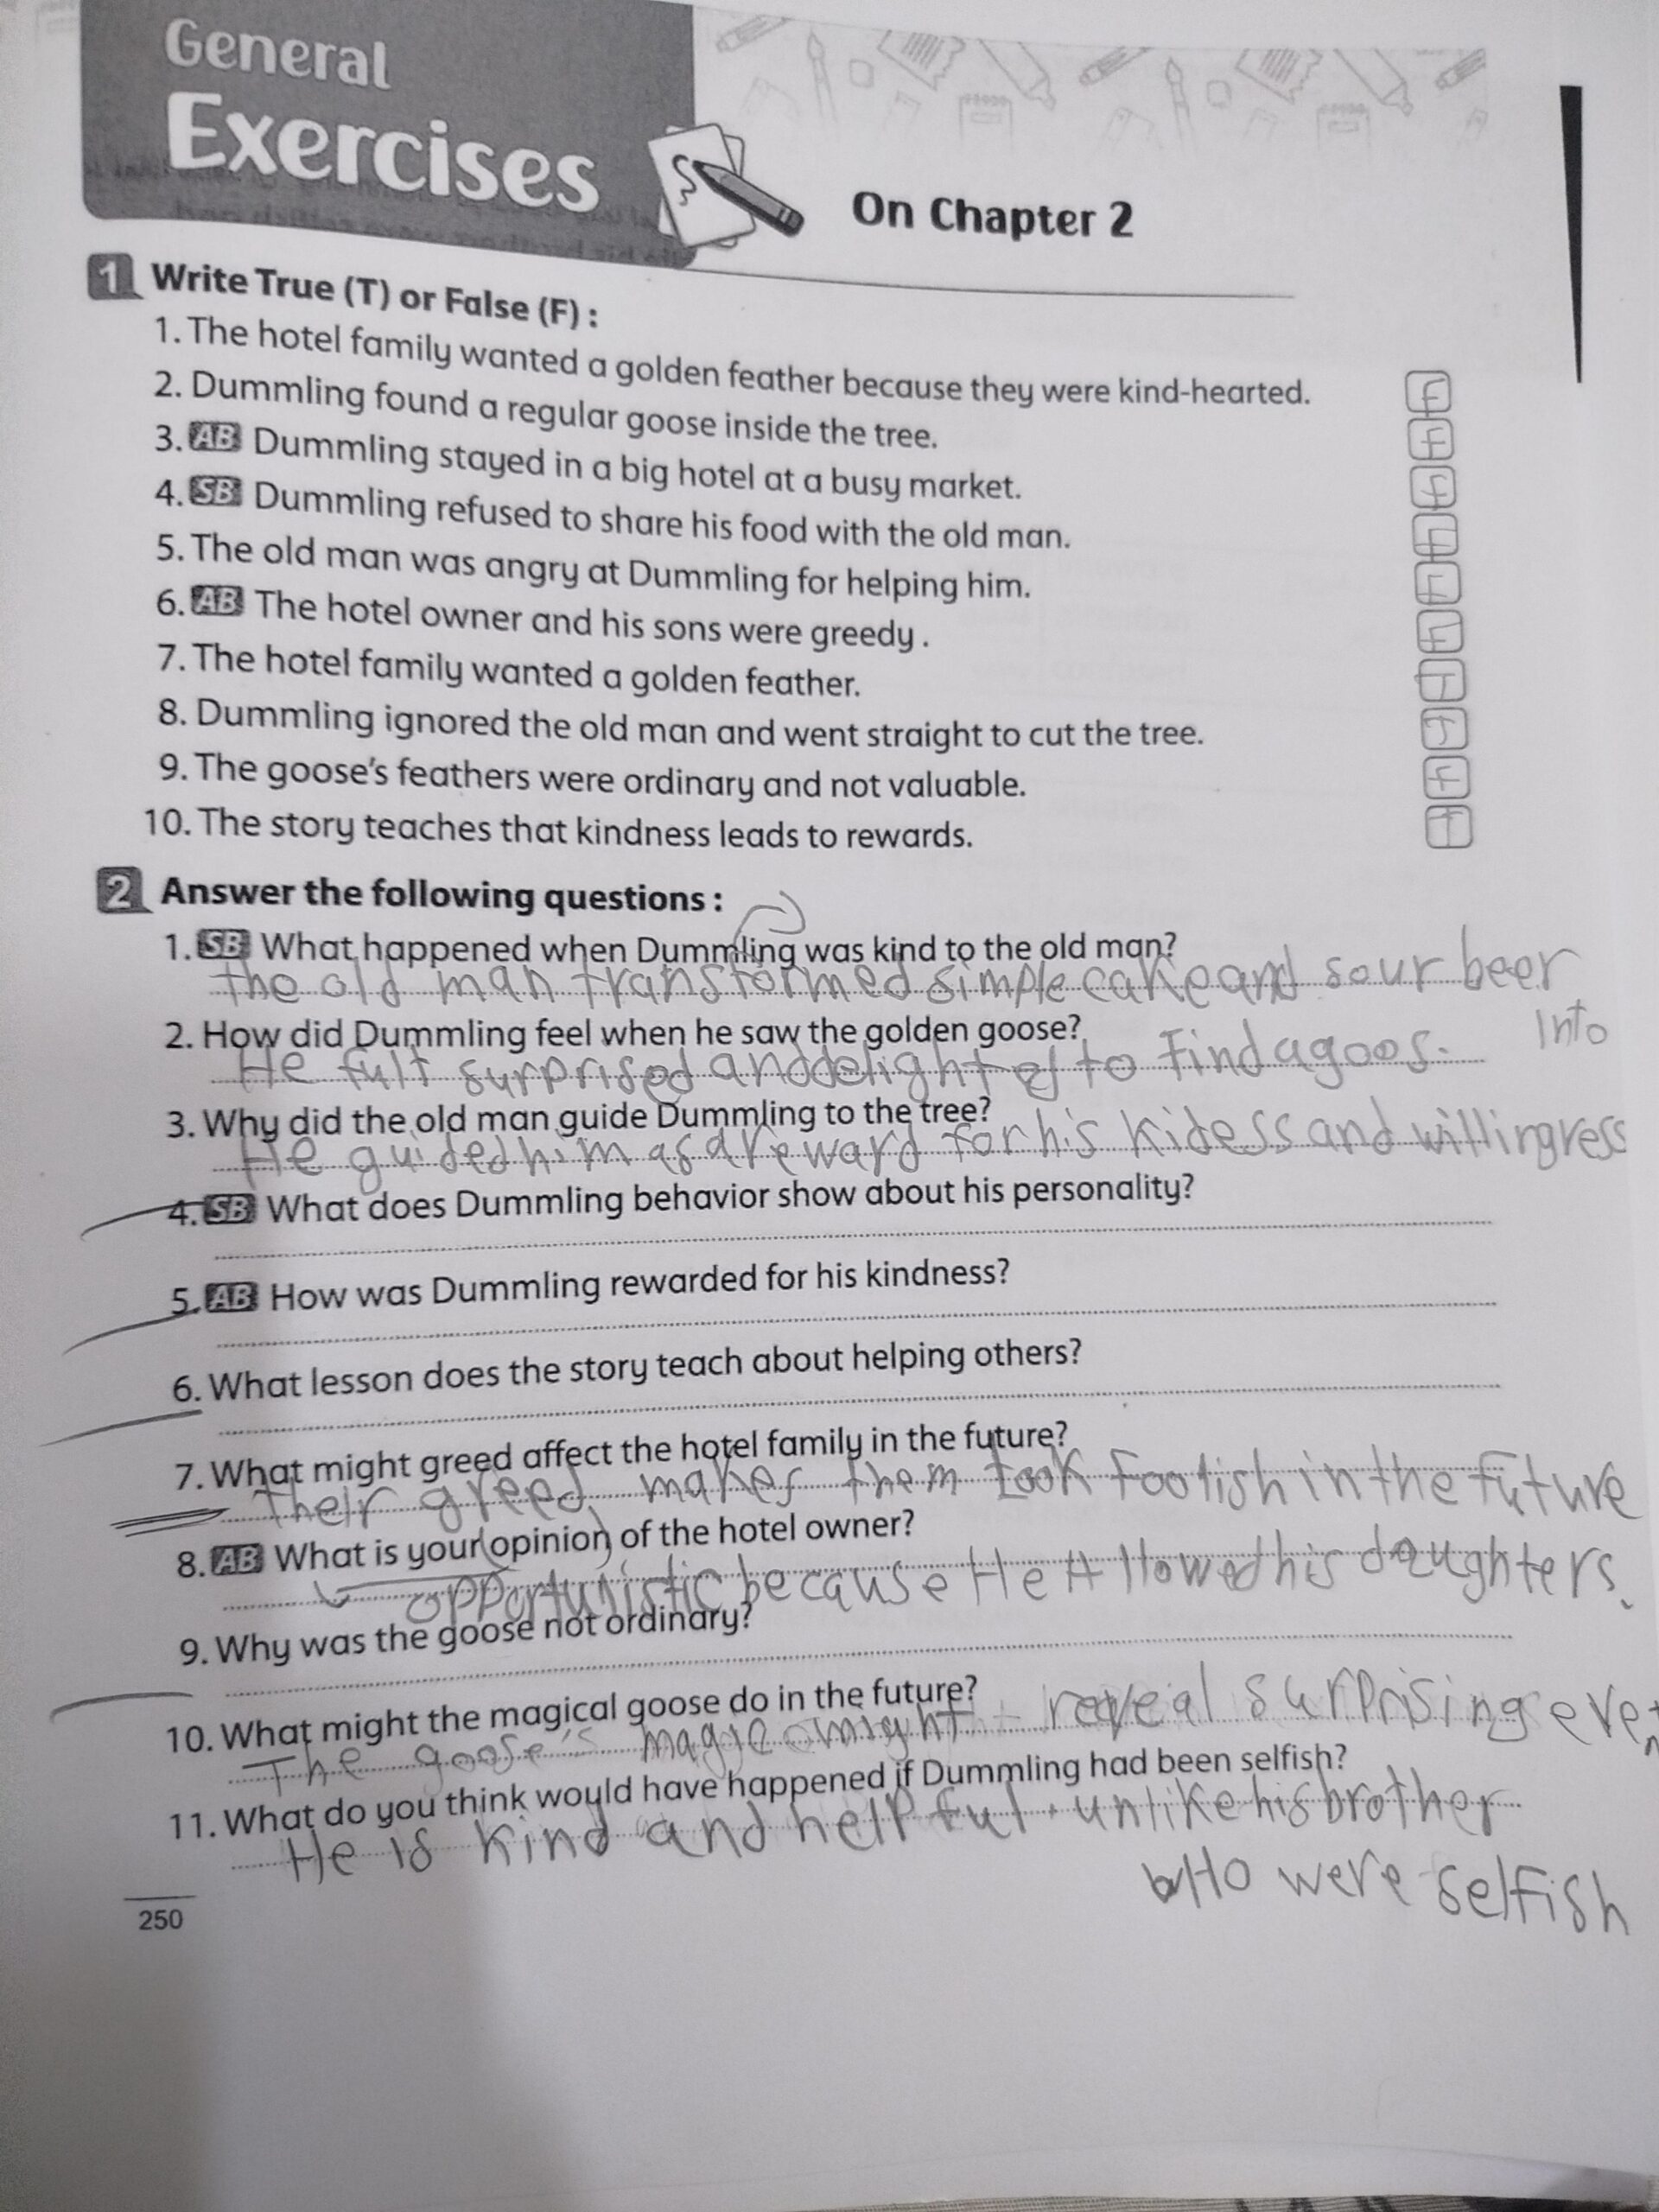 General
Exercises
On Chapter 2
1 Write True (T) or False (F) :
1. The hotel family wanted a golden feather because they were kind-hearted. F
2. Dummling found a regular goose inside the tree. F
3. AB Dummling stayed in a big hotel at a busy market. F
4. SB Dummling refused to share his food with the old man. F
5. The old man was angry at Dummling for helping him. F
6. AB The hotel owner and his sons were greedy .
7. The hotel family wanted a golden feather.
8. Dummling ignored the old man and went straight to cut the tree.
9. The goose's feathers were ordinary and not valuable. F
10. The story teaches that kindness leads to rewards. T
2 Answer the following questions :
1. SB What happened when Dummling was kind to the old man?
the old man transformed simple cake and sour beer
Into
2. How did Dummling feel when he saw the golden goose?
He fult surprised and delighted to find a goos.
3. Why did the old man guide Dummling to the tree?
He guided him as a reward for his kidess and willingress
4. SB What does Dummling behavior show about his personality?
5. AB How was Dummling rewarded for his kindness?
6. What lesson does the story teach about helping others?
7. What might greed affect the hotel family in the future?
Their greed makes them Look Foolish in the future
8. AB What is your opinion of the hotel owner?
opportunistic because He Allowed his daughters.
9. Why was the goose not ordinary?
10. What might the magical goose do in the future?
The goose's magic might reveal surprising event
11. What do you think would have happened if Dummling had been selfish?
He is kind and helpful. unlike his brother
wHo were selfish
250